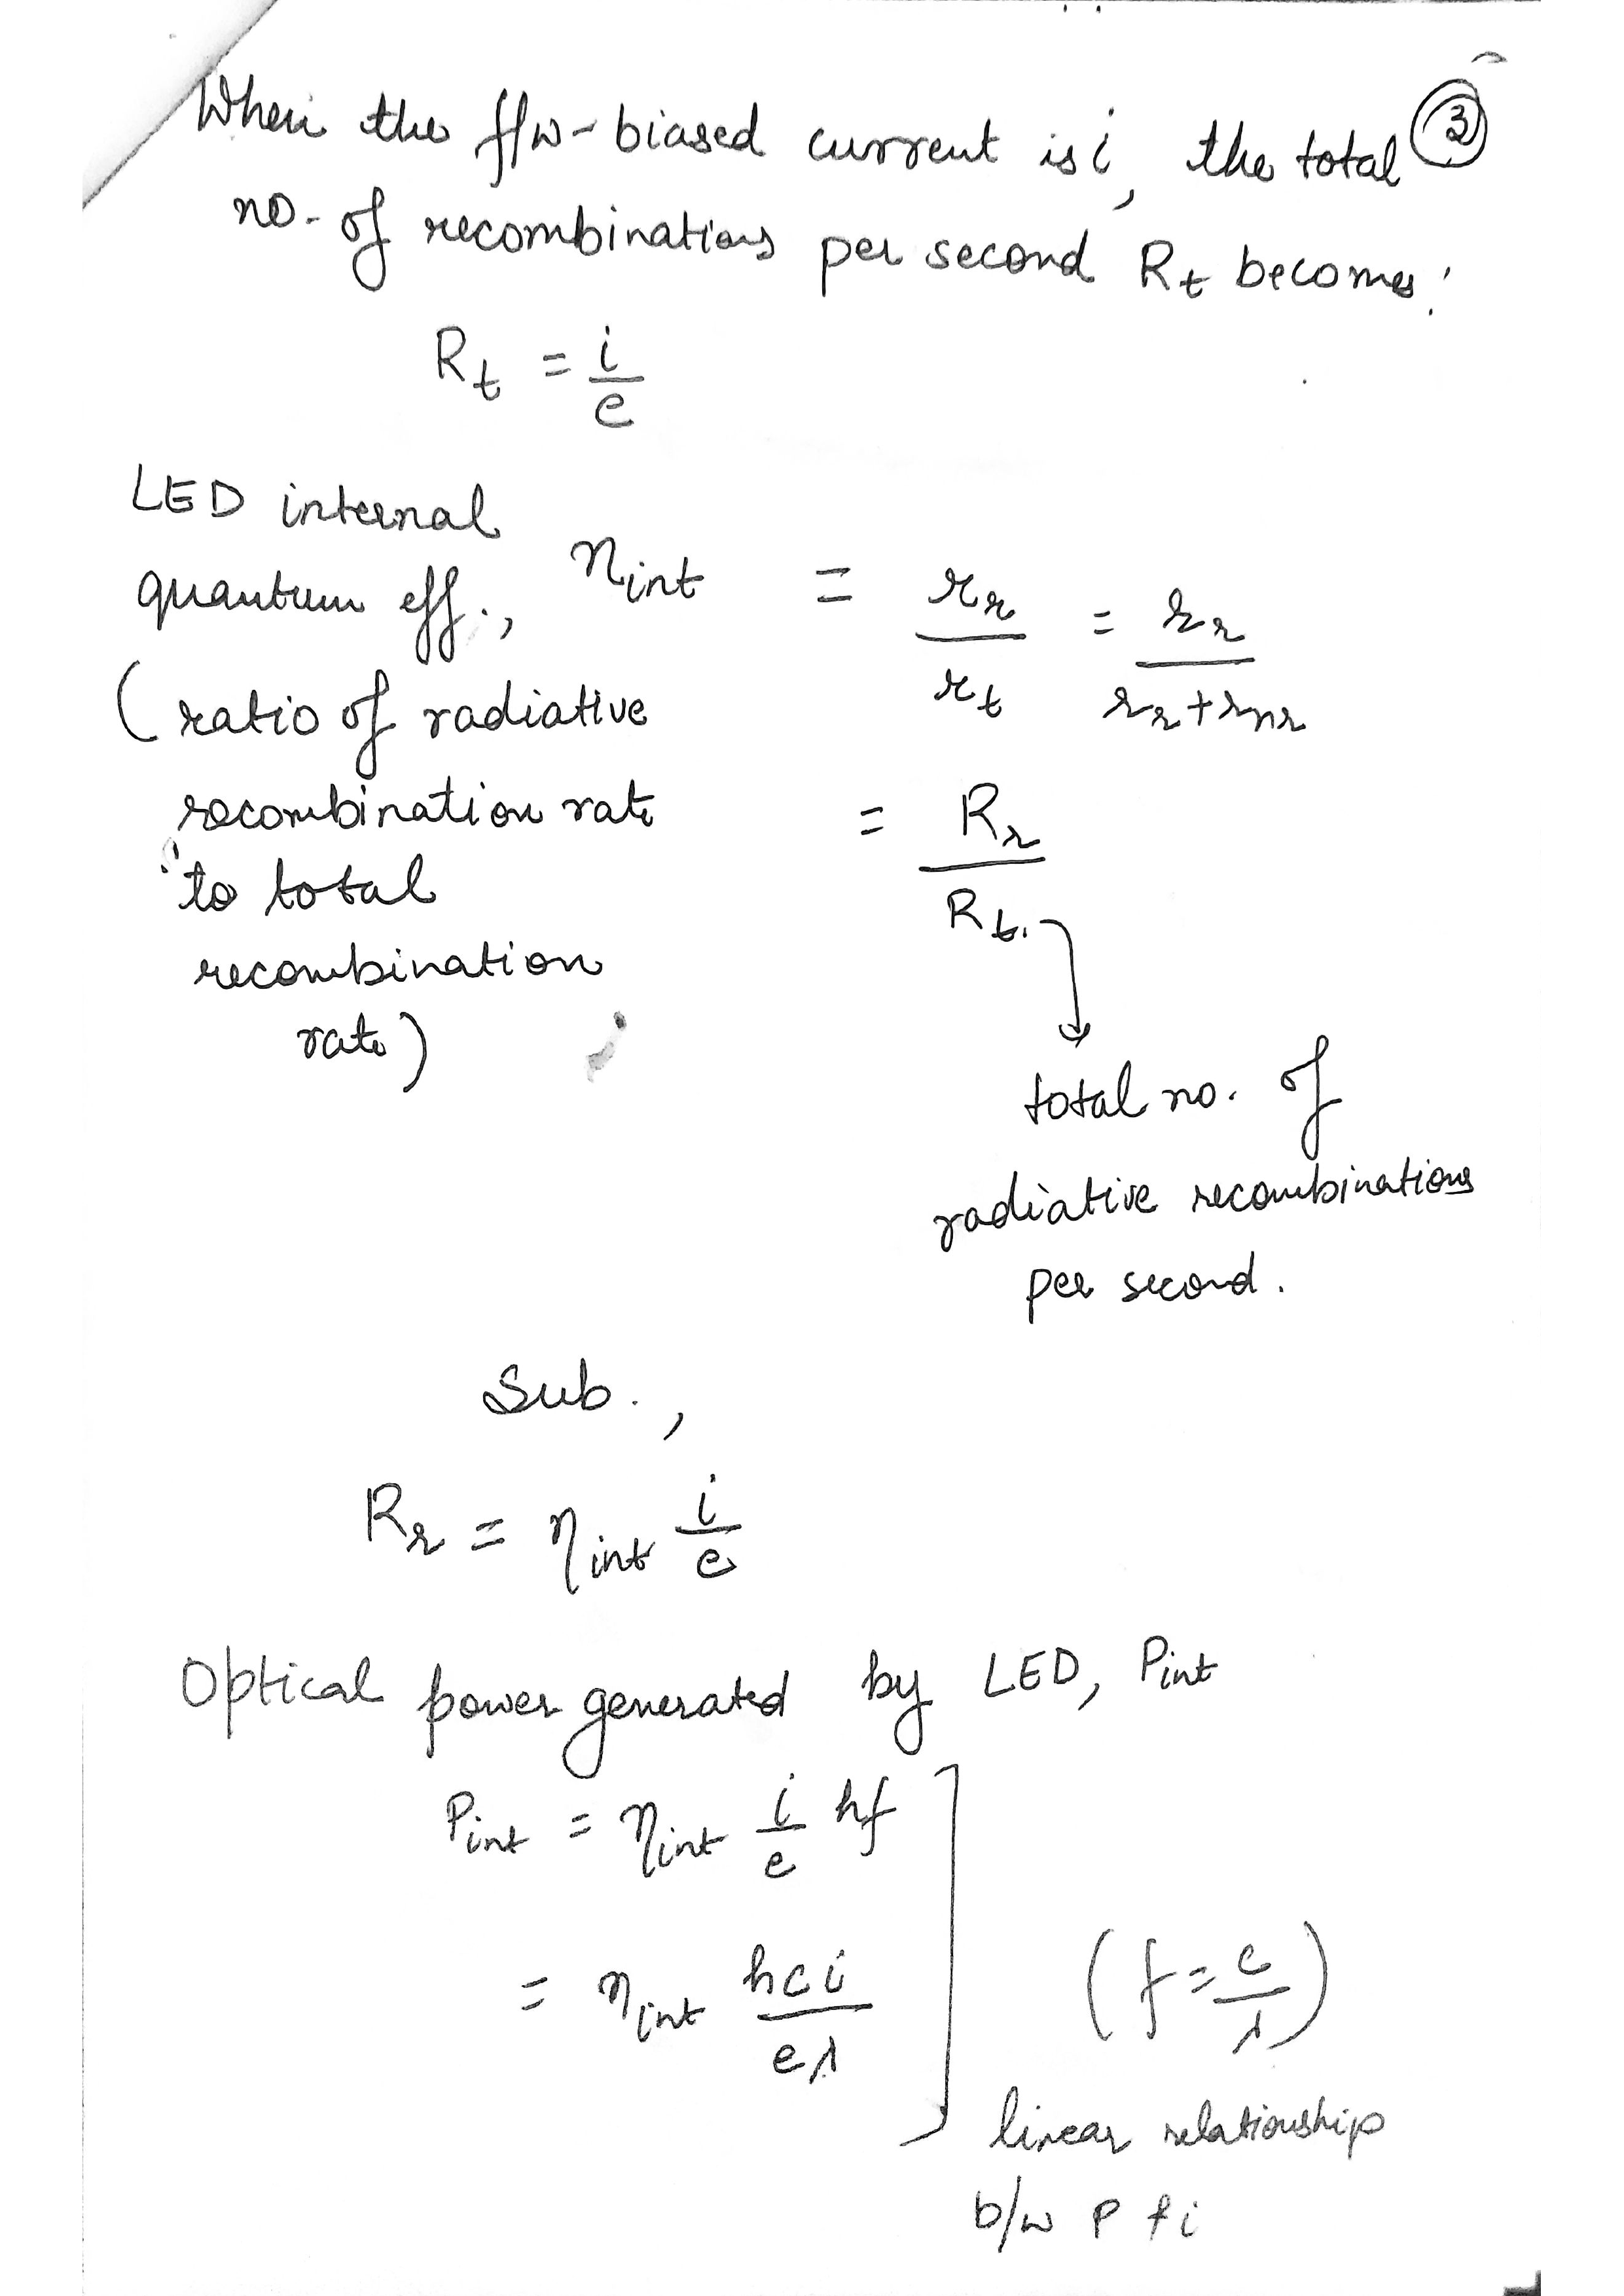 When the f/w-biased current is i, the total ③
no. of recombinations per second Rt becomes:
Rt = i/e
LED internal
quantum eff., ηint = rr/rt = rr/(rr+rnr)
(ratio of radiative
recombination rate = Rr/Rt
to total
recombination
rate)
total no. of
radiative recombinations
per second.
Sub.,
Rr = ηint i/e
Optical power generated by LED, Pint
Pint = ηint i/e hf
= ηint hci/eλ (f = c/λ)
linear relationship
b/w P & i